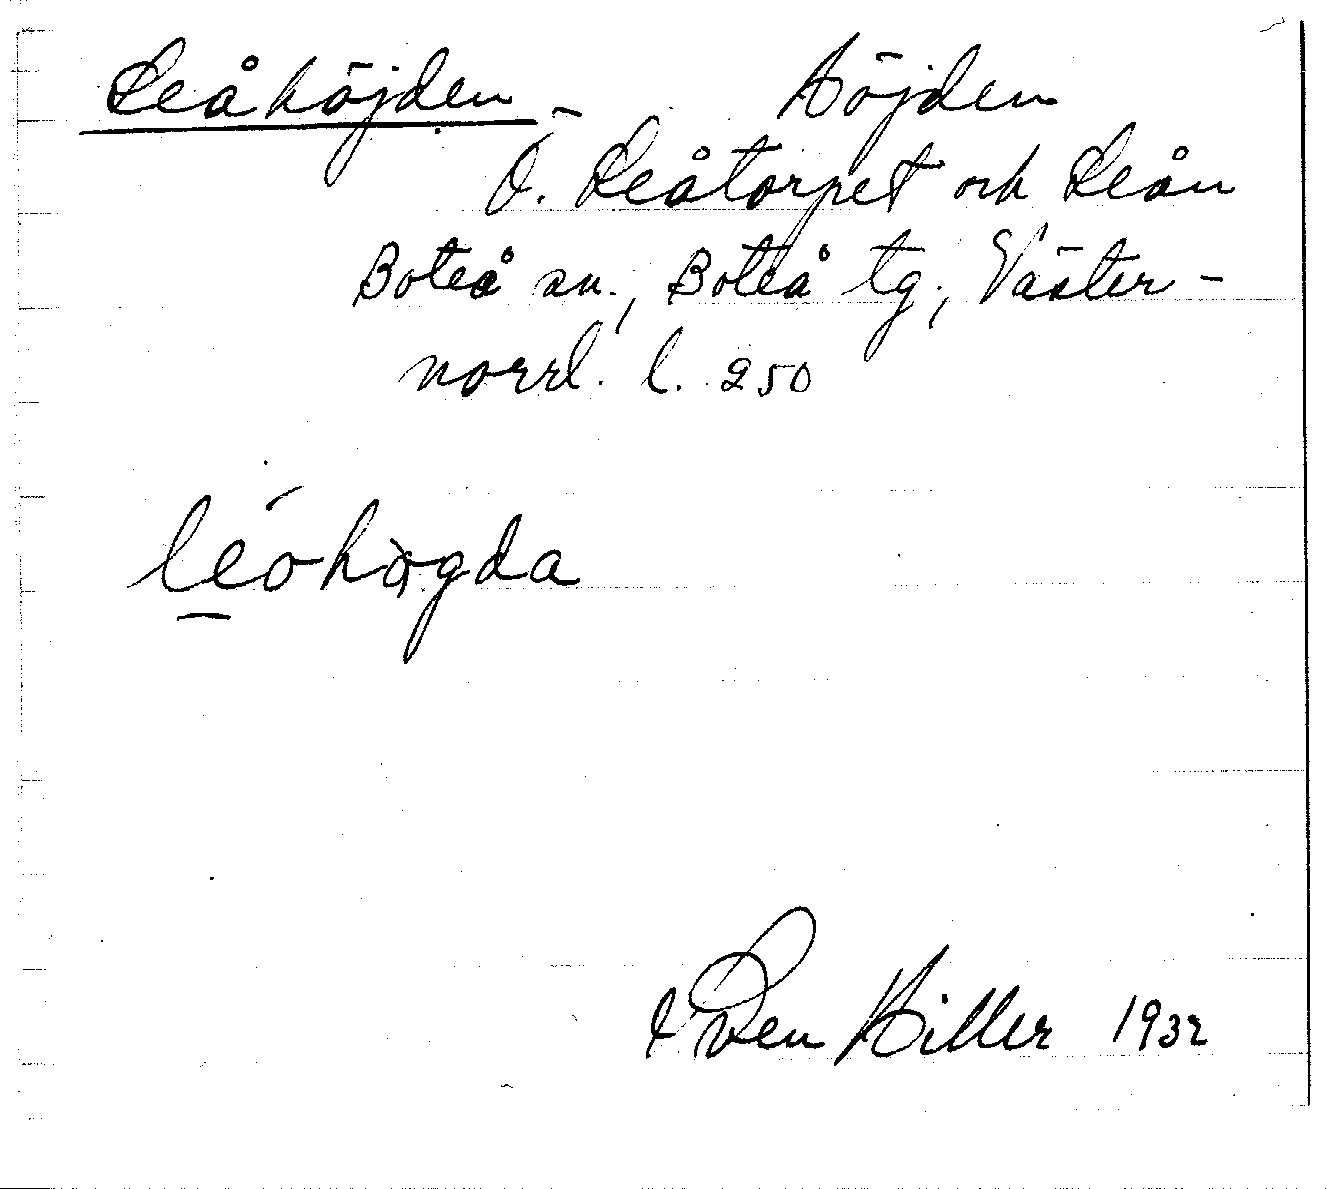 Leåhöjden - Höjden
Ö. Leåtorpet och Leån
Boteå sn., Boteå tg., Väster-
norrl. l. 250
leohøgda
Sven Hiller 1932